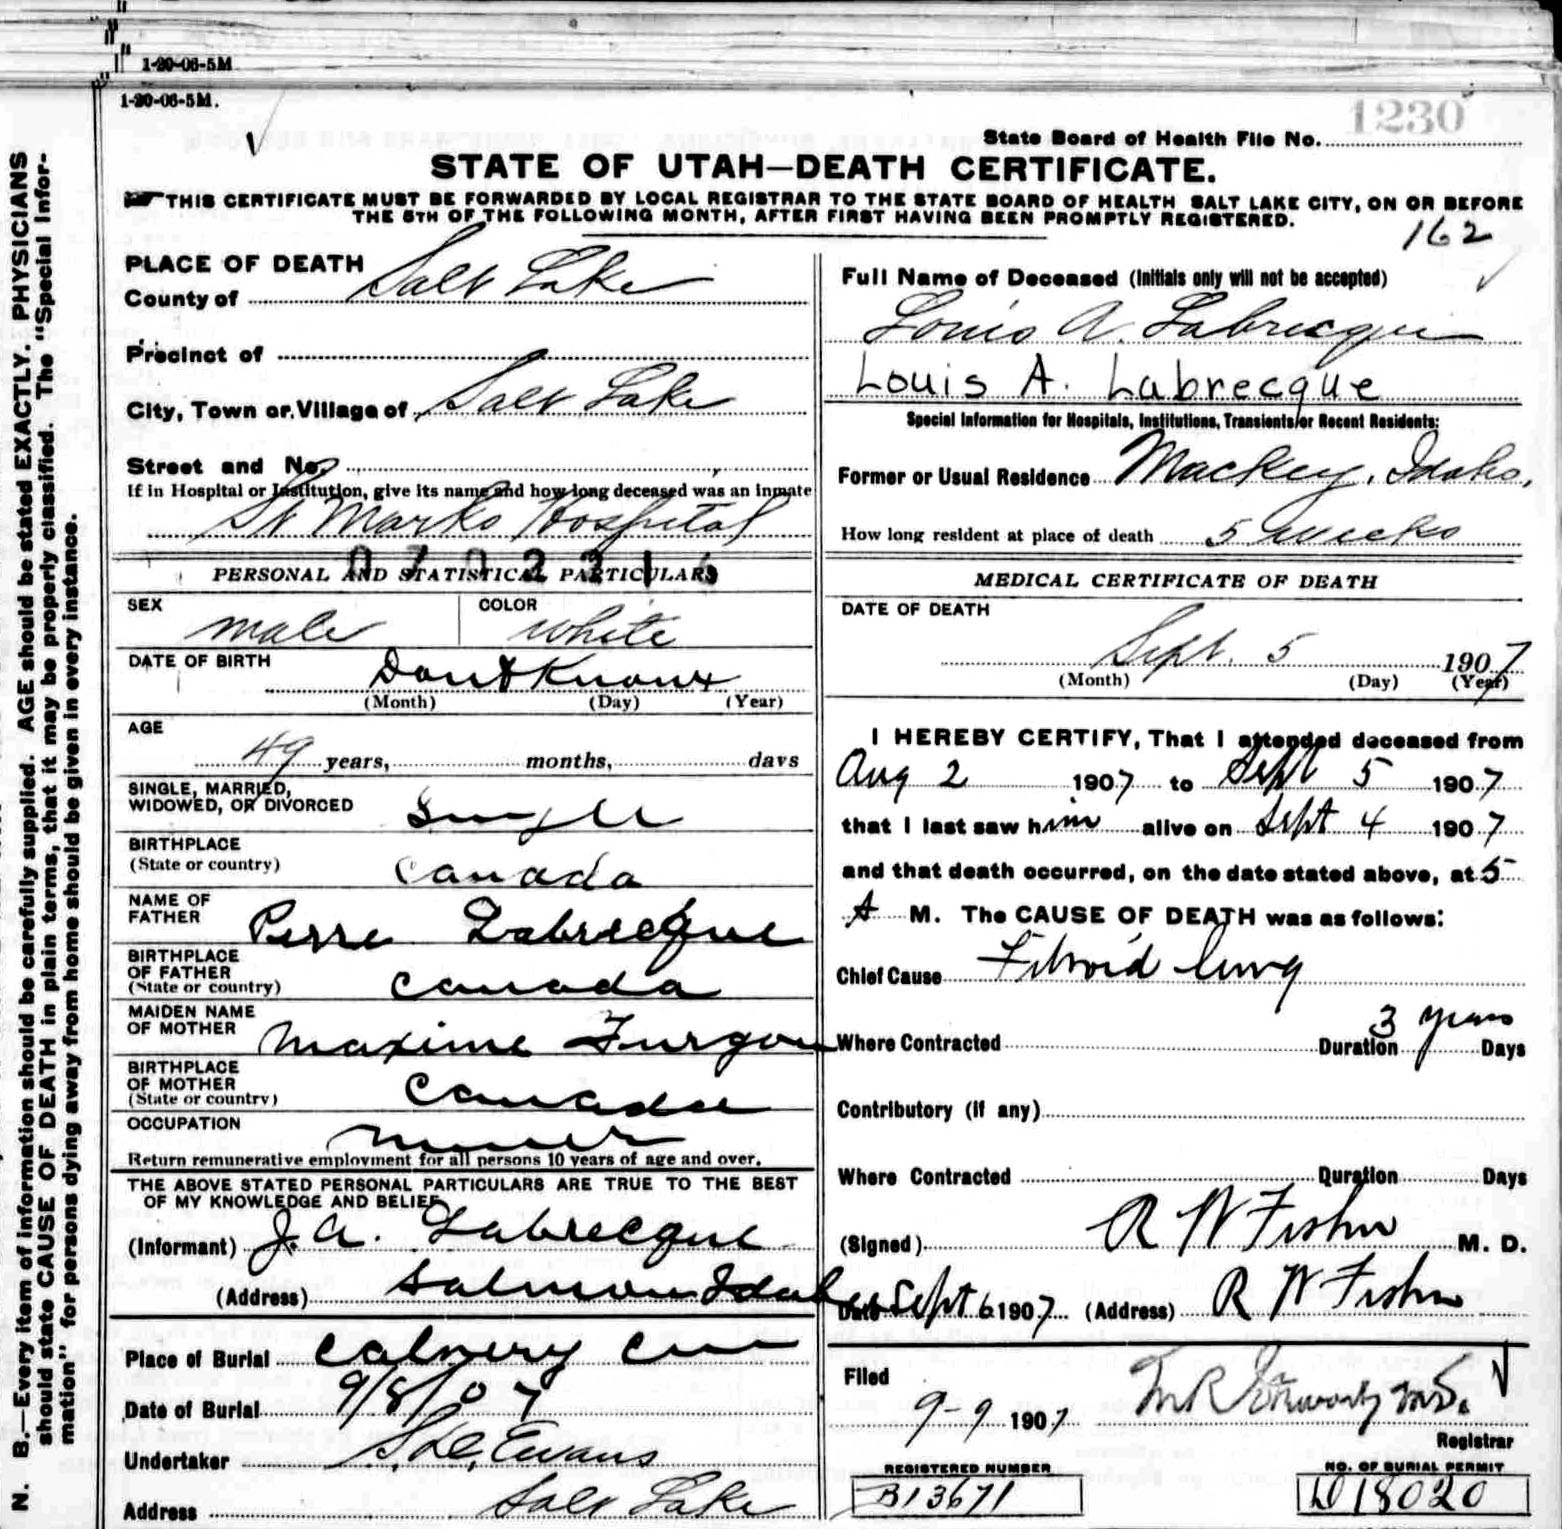 1-20-06-5M
1-20-06-5M.
1230
State Board of Health File No.
STATE OF UTAH—DEATH CERTIFICATE.
THIS CERTIFICATE MUST BE FORWARDED BY LOCAL REGISTRAR TO THE STATE BOARD OF HEALTH SALT LAKE CITY, ON OR BEFORE
THE 5TH OF THE FOLLOWING MONTH, AFTER FIRST HAVING BEEN PROMPTLY REGISTERED.
162
N. B.—Every item of information should be carefully supplied. AGE should be stated EXACTLY. PHYSICIANS
should state CAUSE OF DEATH in plain terms, that it may be properly classified. The "Special Infor-
mation" for persons dying away from home should be given in every instance.
PLACE OF DEATH
County of Salt Lake
Precinct of
City, Town or Village of Salt Lake
Street and No.
If in Hospital or Institution, give its name and how long deceased was an inmate
St Marks Hospital
PERSONAL AND STATISTICAL PARTICULARS
SEX male COLOR white
DATE OF BIRTH Dont Know
(Month) (Day) (Year)
AGE
49 years, months, days
SINGLE, MARRIED,
WIDOWED, OR DIVORCED Single
BIRTHPLACE
(State or country) Canada
NAME OF
FATHER Perre Labrecque
BIRTHPLACE
OF FATHER
(State or country) Canada
MAIDEN NAME
OF MOTHER Maxime Furgon
BIRTHPLACE
OF MOTHER
(State or country) Canada
OCCUPATION Miner
Return remunerative employment for all persons 10 years of age and over.
THE ABOVE STATED PERSONAL PARTICULARS ARE TRUE TO THE BEST
OF MY KNOWLEDGE AND BELIEF
(Informant) J. A. Labrecque
(Address) Salmon Idaho
Place of Burial Calvery Cem
Date of Burial 9/8/07
Undertaker Evans
Address Salt Lake
Full Name of Deceased (Initials only will not be accepted)
Louis A. Labrecque
Louis A. Labrecque
Special Information for Hospitals, Institutions, Transients or Recent Residents:
Former or Usual Residence Mackey, Idaho,
How long resident at place of death 5 weeks
MEDICAL CERTIFICATE OF DEATH
DATE OF DEATH
Sept. 5 1907
(Month) (Day) (Year)
I HEREBY CERTIFY, That I attended deceased from
Aug 2 1907 to Sept 5 1907
that I last saw him alive on Sept 4 1907
and that death occurred, on the date stated above, at 5
A M. The CAUSE OF DEATH was as follows:
Chief Cause Fibroid lung
3 years
Where Contracted Duration Days
Contributory (if any)
Where Contracted Duration Days
(Signed) R W Fisher M. D.
Date Sept 6 1907 (Address) R W Fisher
Filed
9-9 1907
Registrar
REGISTERED NUMBER
B13671
NO. OF BURIAL PERMIT
D18020